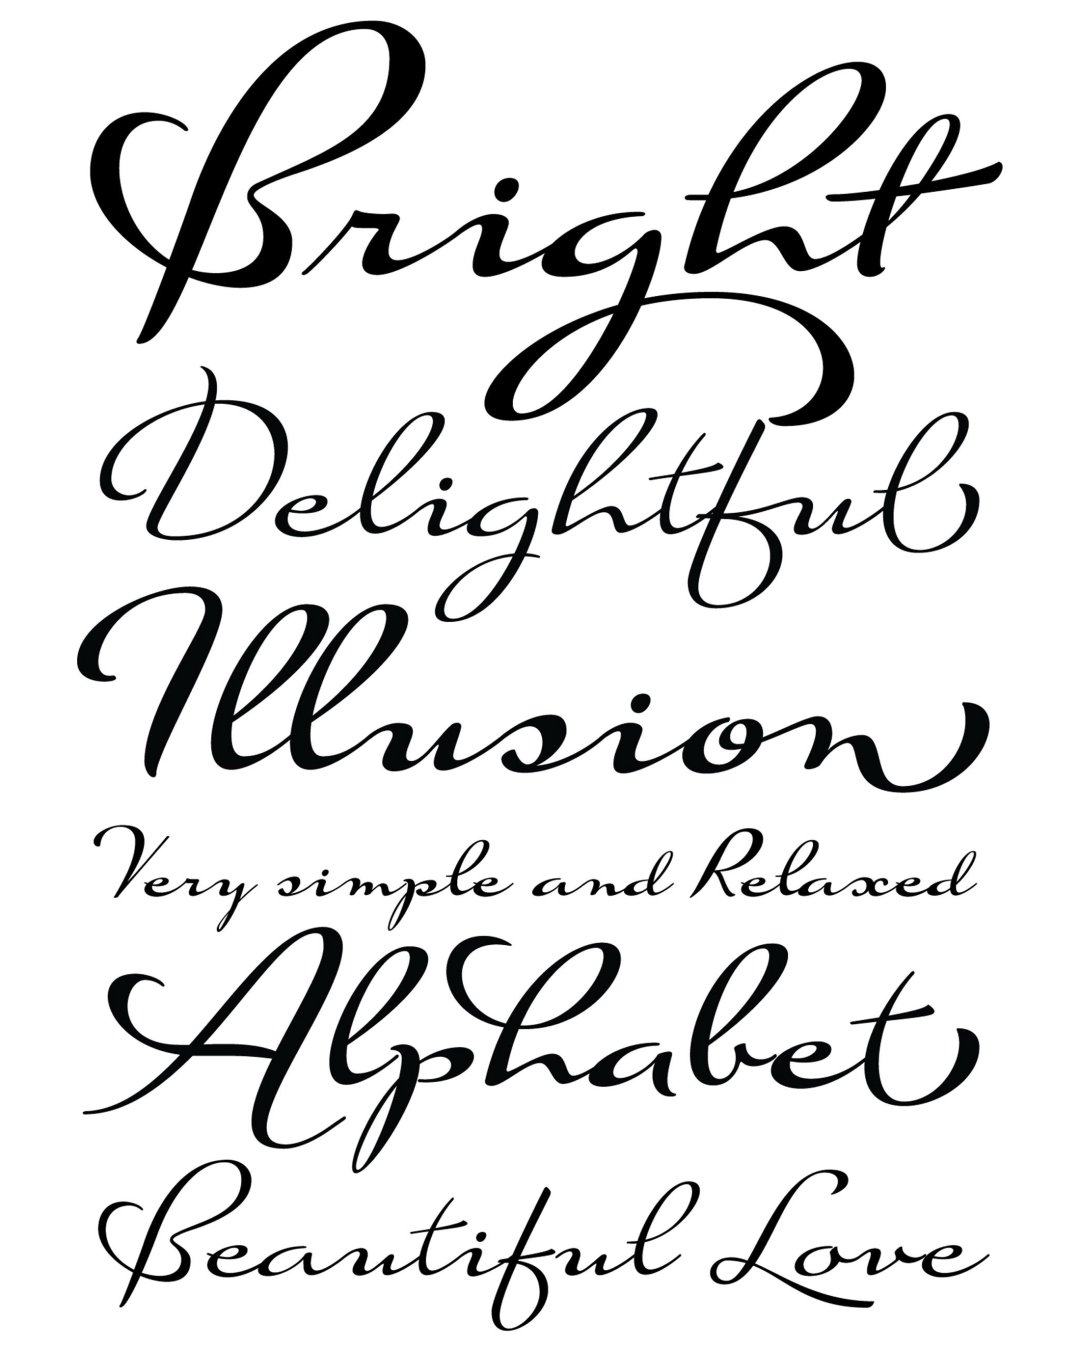 Bright
Delightful
Illusion
Very simple and Relaxed
Alphabet
Beautiful Love